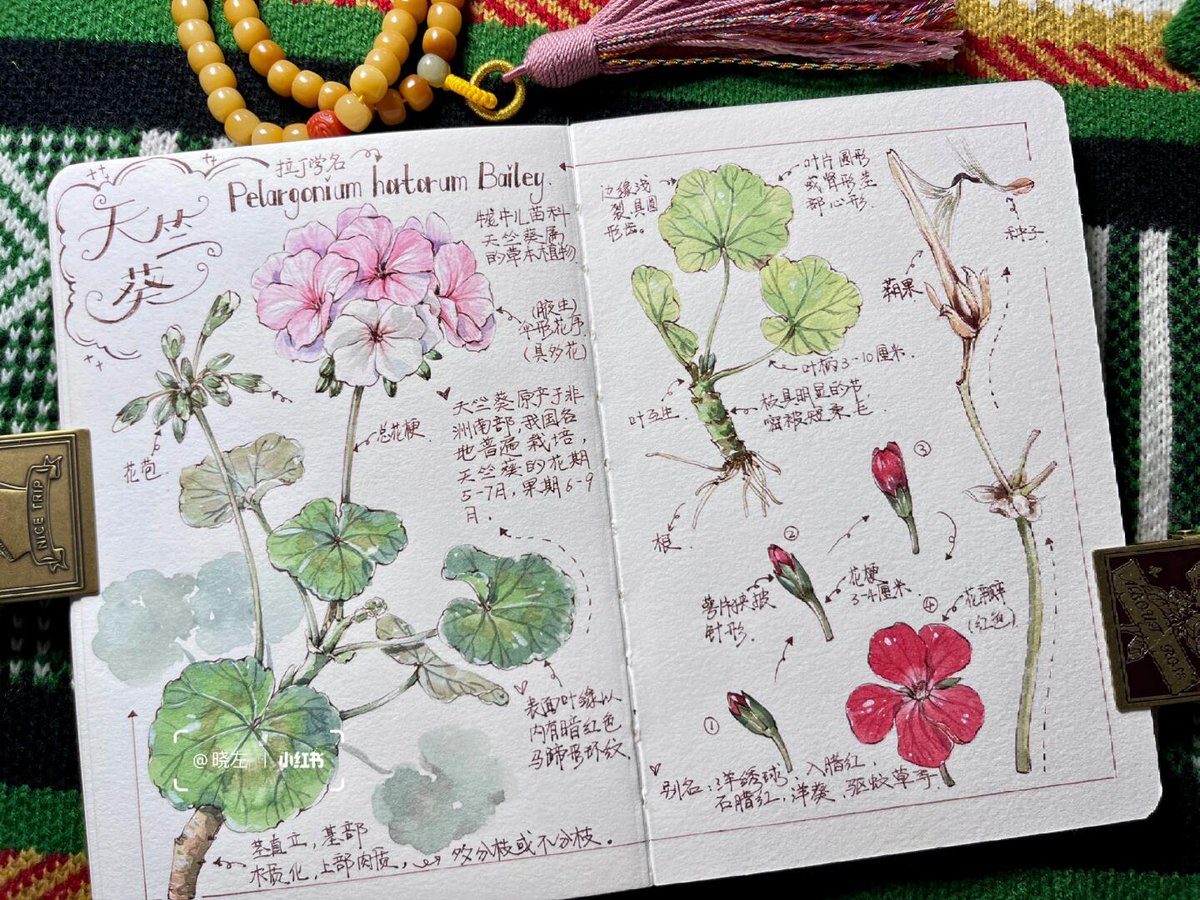 天竺
葵
拉丁学名
Pelargonium hortorum Bailey.
牻牛儿苗科
天竺葵属
的草本植物
(腋生)
伞形花序
(具多花)
花苞
总花梗
天竺葵原产于非
洲南部,我国各
地普遍栽培,
天竺葵的花期
5-7月,果期6-9
月.
表面叶缘以
内有暗红色
马蹄形环纹
茎直立,基部
木质化,上部肉质,
多分枝或不分枝。
@晓左 | 小红书
NICE TRIP
边缘浅
裂,具圆
形齿。
叶片圆形
或肾形,茎
部心形.
叶柄3-10厘米.
叶互生
枝具明显的节
密被短柔毛
根
种子
蒴果
③
②
花梗
3-4厘米
萼片狭披
针形.
④
花瓣
(红色)
①
别名:洋绣球,入腊红,
石腊红,洋葵,驱蚊草等